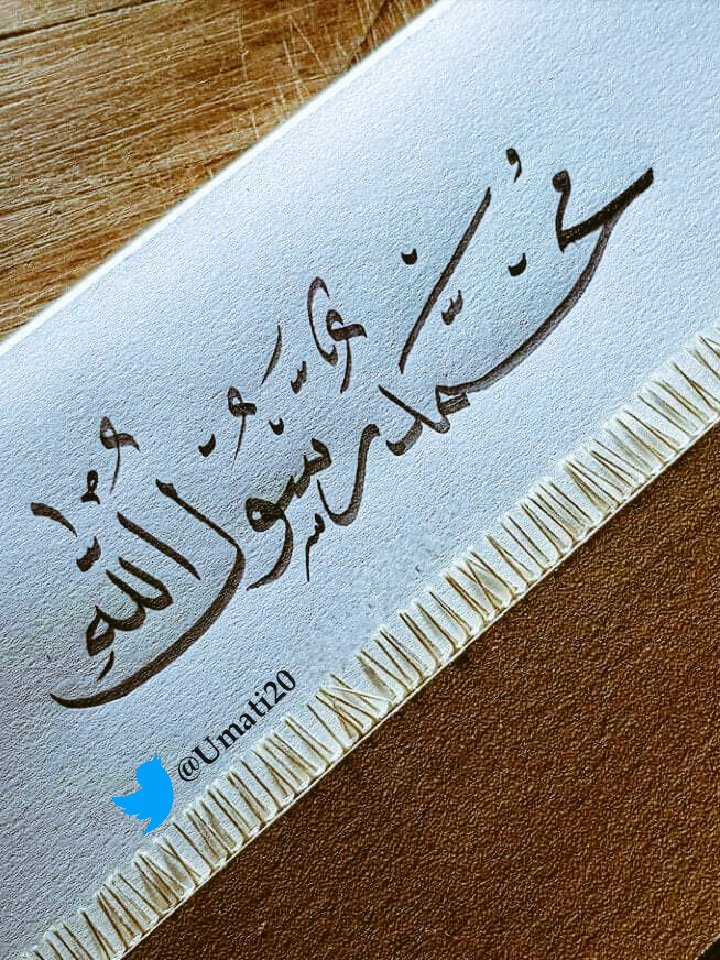 مُحَمَّدٌ رَّسُوْلُ اللّٰهِ
@Umati20